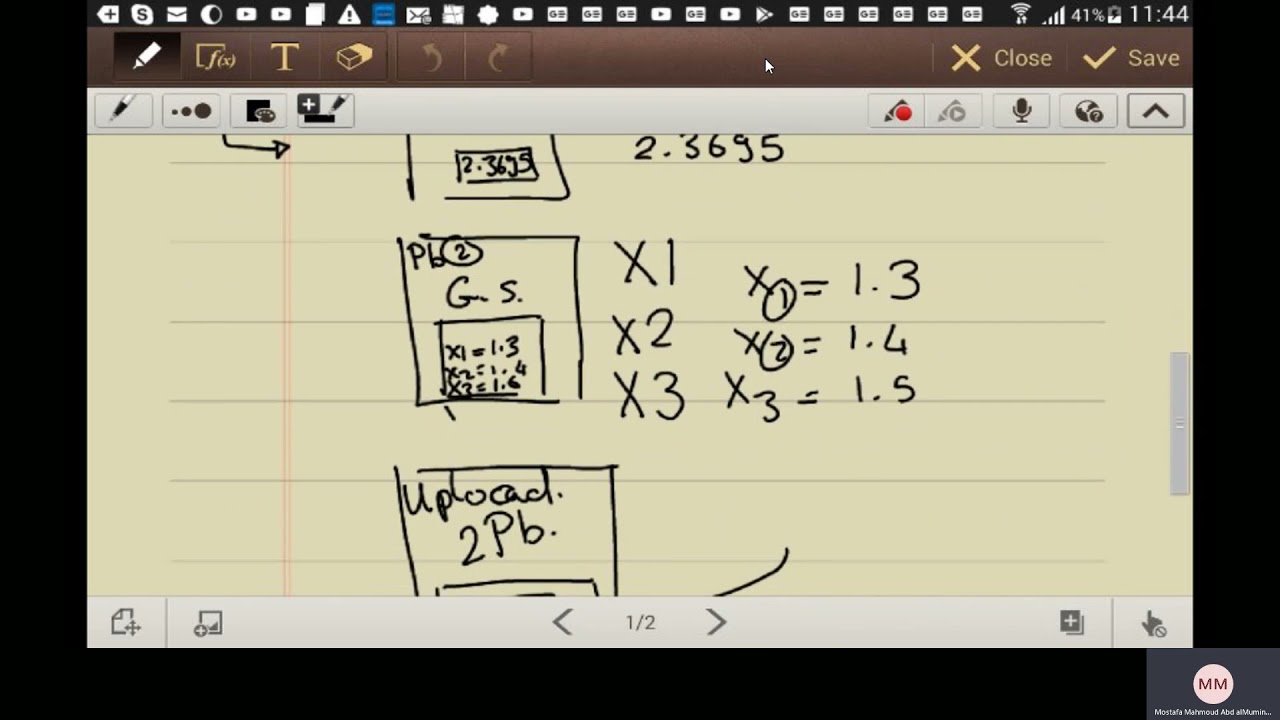 41% 11:44
f(x) T Close Save
2.3695 2.3695
Pb 2
G. S.
x1 = 1.3
x2 = 1.4
x3 = 1.6
X1 x1 = 1.3
X2 x2 = 1.4
X3 x3 = 1.5
Uplocad.
2Pb.
1/2
MM
Mostafa Mahmoud Abd alMumin...